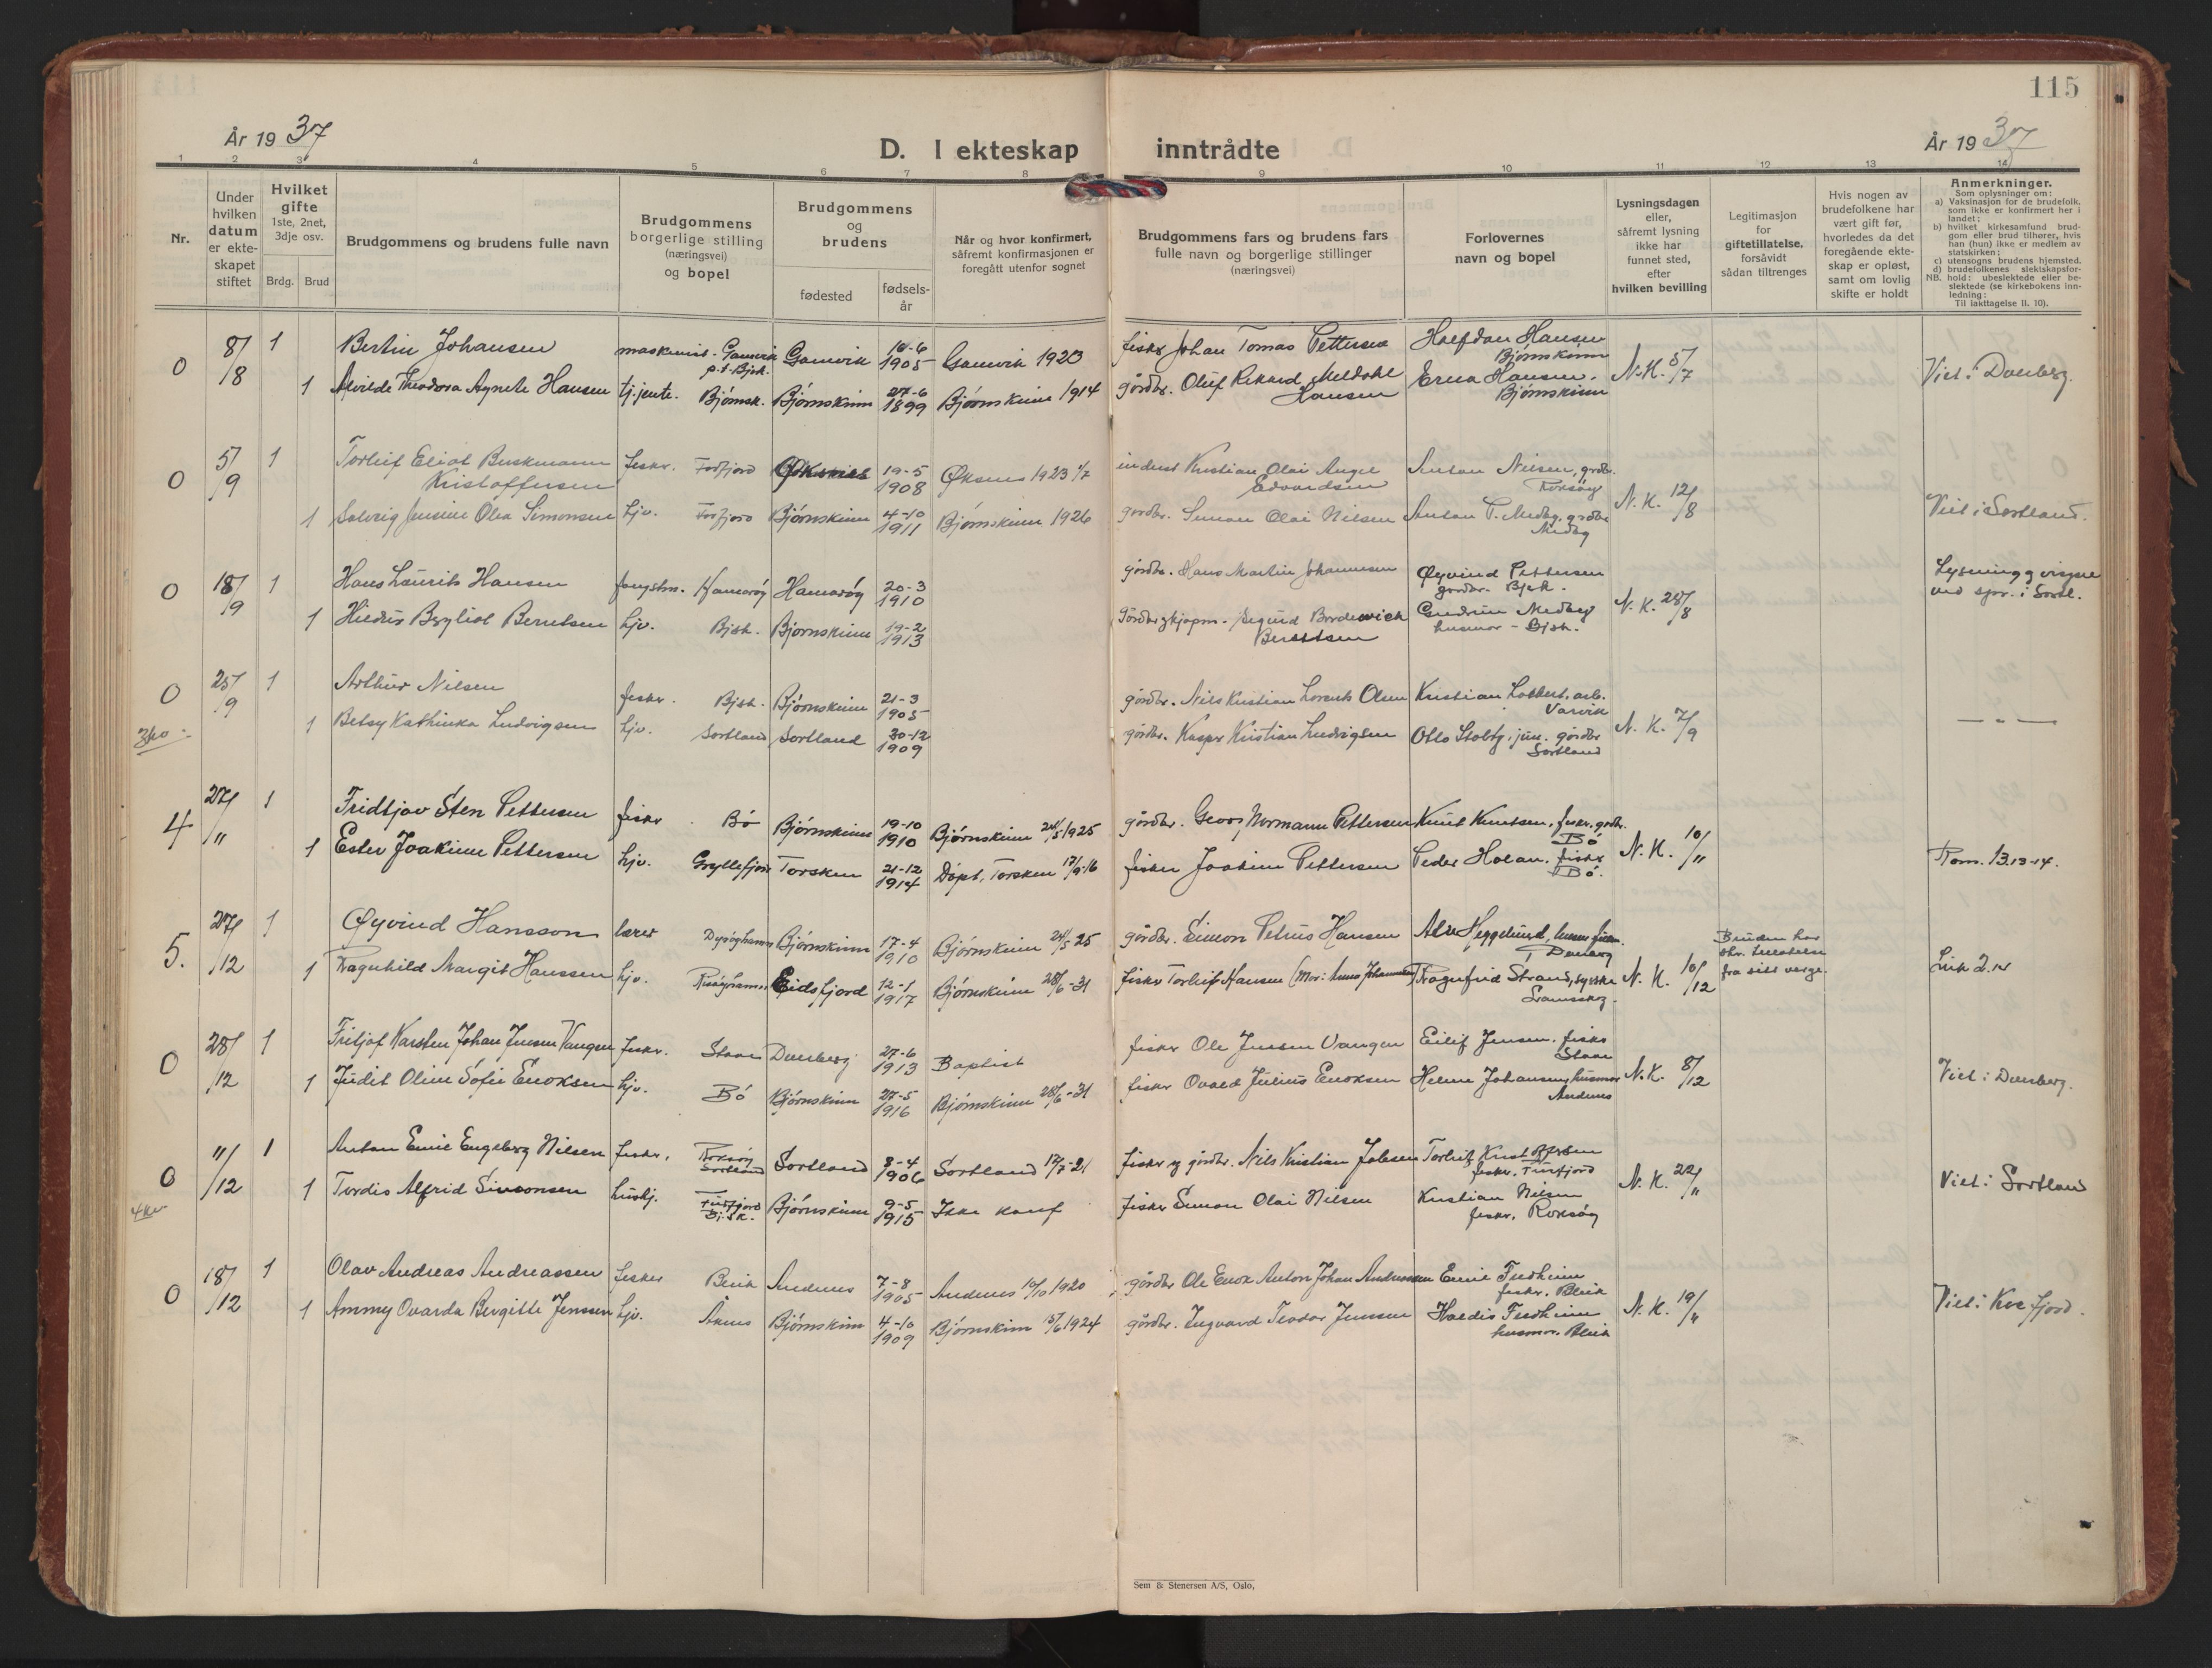 115
År 1937
D. I ekteskap inntrådte
År 1937
1 2 3 4 5 6 7 8 9 10 11 12 13 14
Nr.
Under hvilken datum er ekte-skapet stiftet
Hvilket gifte 1ste, 2net, 3dje osv.
Brdg. Brud
Brudgommens og brudens fulle navn
Brudgommens borgerlige stilling (næringsvei) og bopel
Brudgommens og brudens
fødested
fødsels-år
Når og hvor konfirmert, såfremt konfirmasjonen er foregått utenfor sognet
Brudgommens fars og brudens fars fulle navn og borgerlige stillinger (næringsvei)
Forlovernes navn og bopel
Lysningsdagen eller, såfremt lysning ikke har funnet sted, efter hvilken bevilling
Legitimasjon for giftetillatelse, forsåvidt sådan tiltrenges
Hvis nogen av brudefolkene har vært gift før, hvorledes da det foregående ekte-skap er opløst, samt om lovlig skifte er holdt
Anmerkninger.
Som oplysninger om:
a) Vaksinasjon for de brudefolk, som ikke er konfirmert her i landet;
b) hvilket kirkesamfund brud-gom eller brud tilhører, hvis han (hun) ikke er medlem av statskirken;
c) utensogns brudens hjemsted.
d) brudefolkenes slektskapsfor-hold: ubeslektede eller be-slektede (se kirkebokens inn-ledning:
NB. Til iakttagelse II. 10).
0 8/8 1 Bertin Johansen maskinist - Gamvik p.t. Bjsk. Gamvik 16-6 1905 Gamvik 1920 fisker Johan Tomas Pettersen Halfdan Hansen Bjørnskinn
1 Alvilde Theodora Agnete Hansen tj.jente. Bjørnsk. Bjørnskinn 27-6 1899 Bjørnskinn 1914 gårdbr. Oluf Rikard Meldahl Hansen Erna Hansen, Bjørnskinn N.K. 5/7 Viet i Dverberg.
0 5/9 1 Torleif Eliot Buskmann Kristoffersen fisker. Forfjord 19-5 1908 Øksnes 1923 1/7 Kristian Olai Angel Edvardsen Anton Nilsen, grdbr. Roksøy
1 Solveig Jensine Olea Simonsen hjv. Forfjord Bjørnskinn 4-10 1911 Bjørnskinn 1926 gardbr. Simon Olai Nilsen Anton P. Medby, grdbr Medby N.K. 12/8 Viet i Sortland.
0 18/9 1 Hans Laurits Hansen fangstm. Hamarøy Hamarøy 20-3 1910 gårdbr. Hans Martin Johannesen Øyvind Pettersen gardbr. Bjsk.
1 Bergliot Berntsen hjv. Bjsk. Bjørnskinn 19-2 1913 Sigurd Berntsen Gudrun Medby husmor - Bjsk. N.K. 28/8 Lysning og vigsel ved spr. i Sortl.
0 25/9 1 Arthur Nilsen fisker. Bjsk. Bjørnskinn 21-3 1905 gårdbr. Nils Kristian Lorents Olsen Kristian arb. Varvik
1 Betsy Kathinka Ludvigsen hjv. Sortland Sortland 30-12 1909 gårdbr. Kasper Kristian Ludvigsen Otto jun. gårdbr Sortland N.K. 7/9 — " —
4 27/11 1 Fridtjov Sten Pettersen fisker Bø Bjørnskinn 19-10 1910 Bjørnskinn 24/5 1925 gårdbr. Georg Normann Pettersen Knut Knutsen, fisker, grdbr. Bø
1 Ester Joakime Pettersen hjv. Gryllefjord Torsken 21-12 1914 Døpt, Torsken 17/9-16 fisker Joakim Pettersen Peder Holan, fisker Bø. N.K. 10/11 Rom. 13.13-14.
5. 27/12 1 Øyvind Hansson lærer Bjørnskinn 17-4 1910 Bjørnskinn 24/5 25 gårdbr. Simon Petrus Hansen Heggelund
1 Ragnhild Margit Hanssen hjv. Risøyhamn Eidsfjord 12-1 1917 Bjørnskinn 28/6-31 fisker Torleif Hansen (Mor: Anna Johannesen) Ragnfrid Strand, N.K. 10/12 Bruden har skr. tillatelse fra sitt verge.
0 28/12 1 Fritjof Karsten Johan Jensen Vangen fisker. Stave Dverberg 27-6 1913 Baptist fisker Ole Jensen Vangen Eilif Jensen, fisker Stave
1 Judit Oline Sofie Enoksen hjv. Bø Bjørnskinn 27-5 1916 Bjørnskinn 28/6-31 fisker Julius Enoksen Helene Johansen, husmor Andenes N.K. 8/12 Viet i Dverberg.
0 11/12 1 Anton Emil Engeberg Nilsen fisker, Roksøy Sortland Sortland 8-4 1906 Sortland 17/7-21 fisker og gårdbr. Nils Kristian Torleif Kristoffersen fisker.
1 Tordis Alfrid Simonsen hushj. Bjsk. Bjørnskinn 9-5 1915 Ikke konf fisker Simon Olai Nilsen Kristian Nilsen fisker, Roksøy N.K. 22/11 Viet i Sortland
4kv
0 18/12 1 Olav Andreas Andreassen fisker Bleik Andenes 7-8 1905 Andenes 10/10 1920 gårdbr Ole Enok Anton Johan Andreassen Emil Fredheim fisker, Bleik
1 Ammy Ovarda Bergitte Jenssen hjv. Åknes Bjørnskinn 4-10 1909 Bjørnskinn 15/6 1924 gårdbr. Ingvard Teodor Jenssen Haldis Fredheim husmor. Bleik N.K. 19/11 Viet i Kvefjord.
Sem & Stenersen A/S, Oslo,